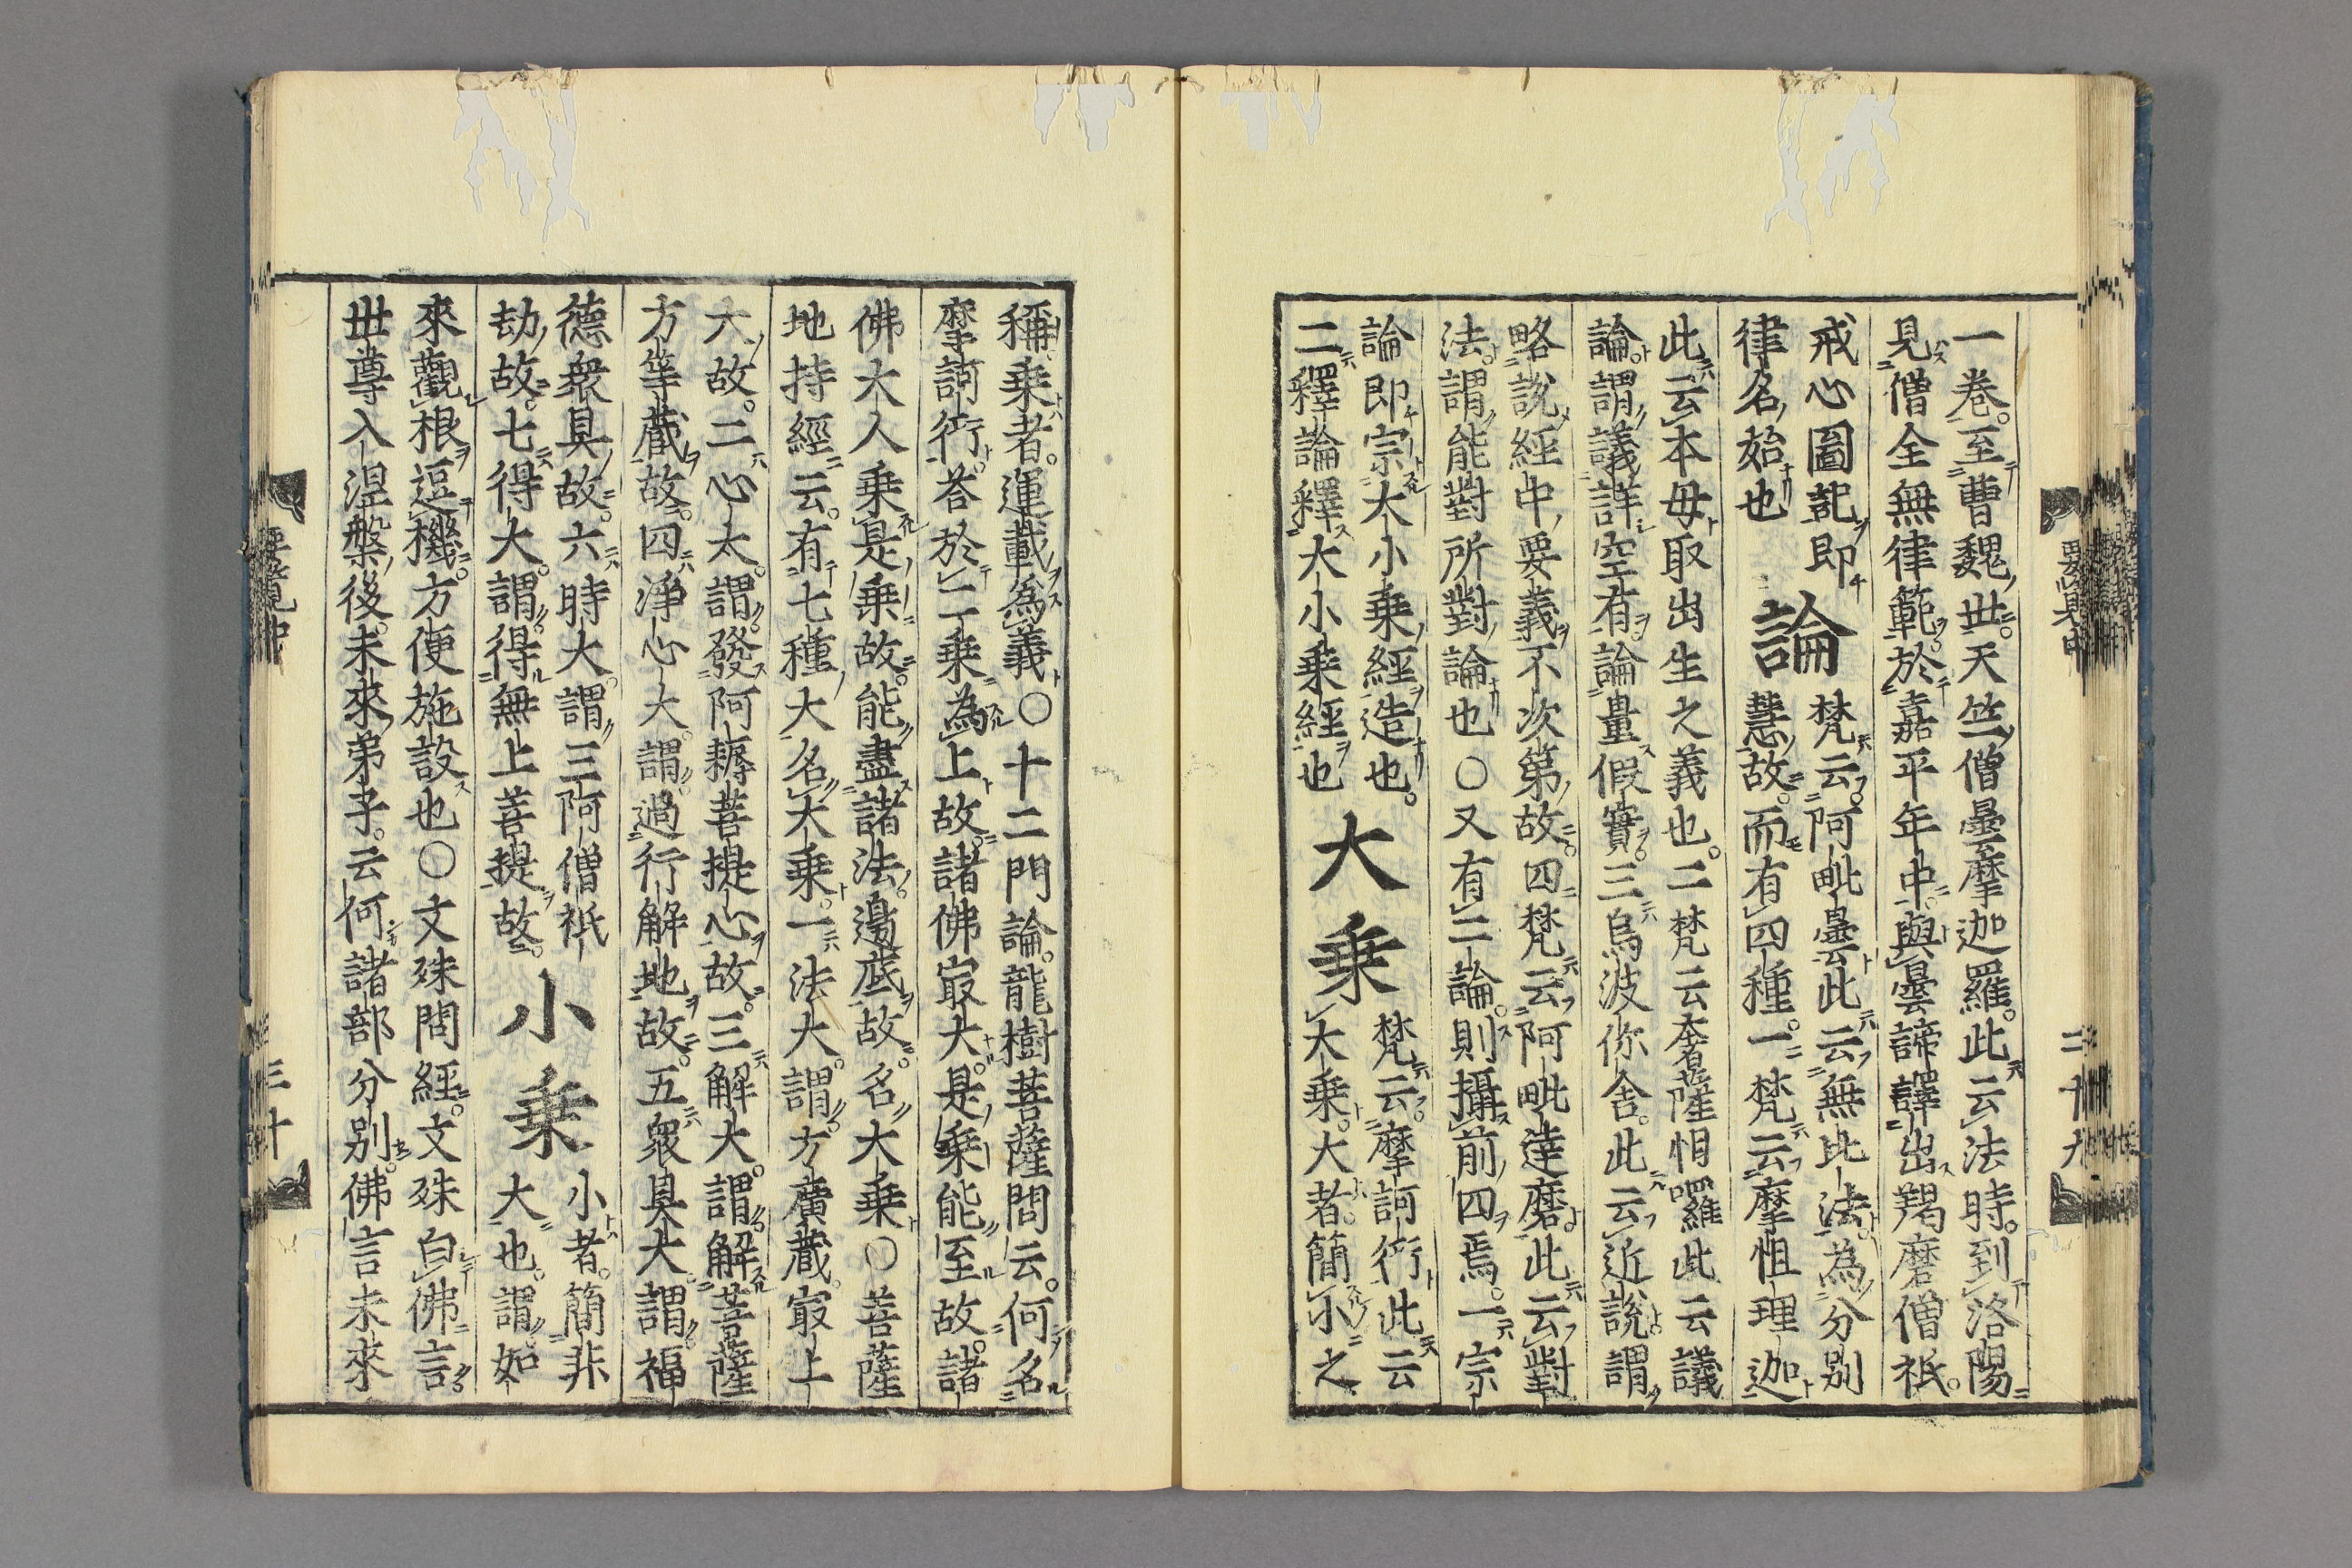 一卷。至曹魏世。天竺僧曇摩迦羅。此云法時。到洛陽
見僧全無律範。於嘉平年中。與曇諦譯出羯磨僧祇。
戒心圖記即
律名始也
論
梵云阿毗曇此云無比法。為分別
慧故。而有四種。一梵云摩怛理迦
此云本毋取出生之義也。二梵云奢薩怛囉此云議
論。謂議詳空有。論量假實。三烏波你舍。此云近說。謂
略說經中要義不次第故。四梵云阿毗達磨。此云對
法。謂能對所對論也○又有二論。則攝前四焉。一宗
論即宗大小乗經造也。
二釋論釋大小乗經也
大乗
梵云。摩訶衍此云
大乗。大者。簡小之
要覽中
二十九
稱乗者。運載為義○十二門論。龍樹菩薩問云。何名
摩訶衍。荅於二乗為上故。諸佛㝡大。是乗能至故。諸
佛大人乗是乗故。能盡諸法。邊底故。名大乗○菩薩
地持經云。有七種大名大乗。一法大。謂。方廣蔵㝡上
大故。二心大。謂。發阿耨菩提心故。三解大。謂。解菩薩
方等蔵故。四淨心大。謂。過行解地故。五衆具大。謂。福
德衆具故。六時大。謂三阿僧祇
劫故。七得大。謂。得無上菩提故。
小乗
小者。簡非
大也。謂。如
來觀根逗機。方便施設也○文殊問經。文殊白佛言。
世尊入涅槃後。未來弟子。云何諸部分別。佛言未來
要覽中
三十